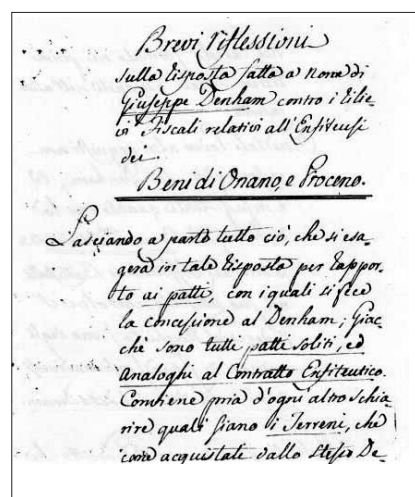 Brevi riflessioni
sulla risposta fatta a nome di
Giuseppe Denham contro i rilie-
vi Fiscali relativi all'Enfiteusi
dei
Beni di Onano, e Proceno.
Lasciando a parte tutto ciò, che si esa-
gera in tale risposta per rappor-
to ai patti, con i quali si fece
la concessione al Denham; Giac-
chè sono tutti patti soliti, ed
Analoghi al Contratto Enfiteutico.
Conviene pria d'ogni altro schia-
rire quali siano i Terreni, che
come acquistate dallo stesso De-